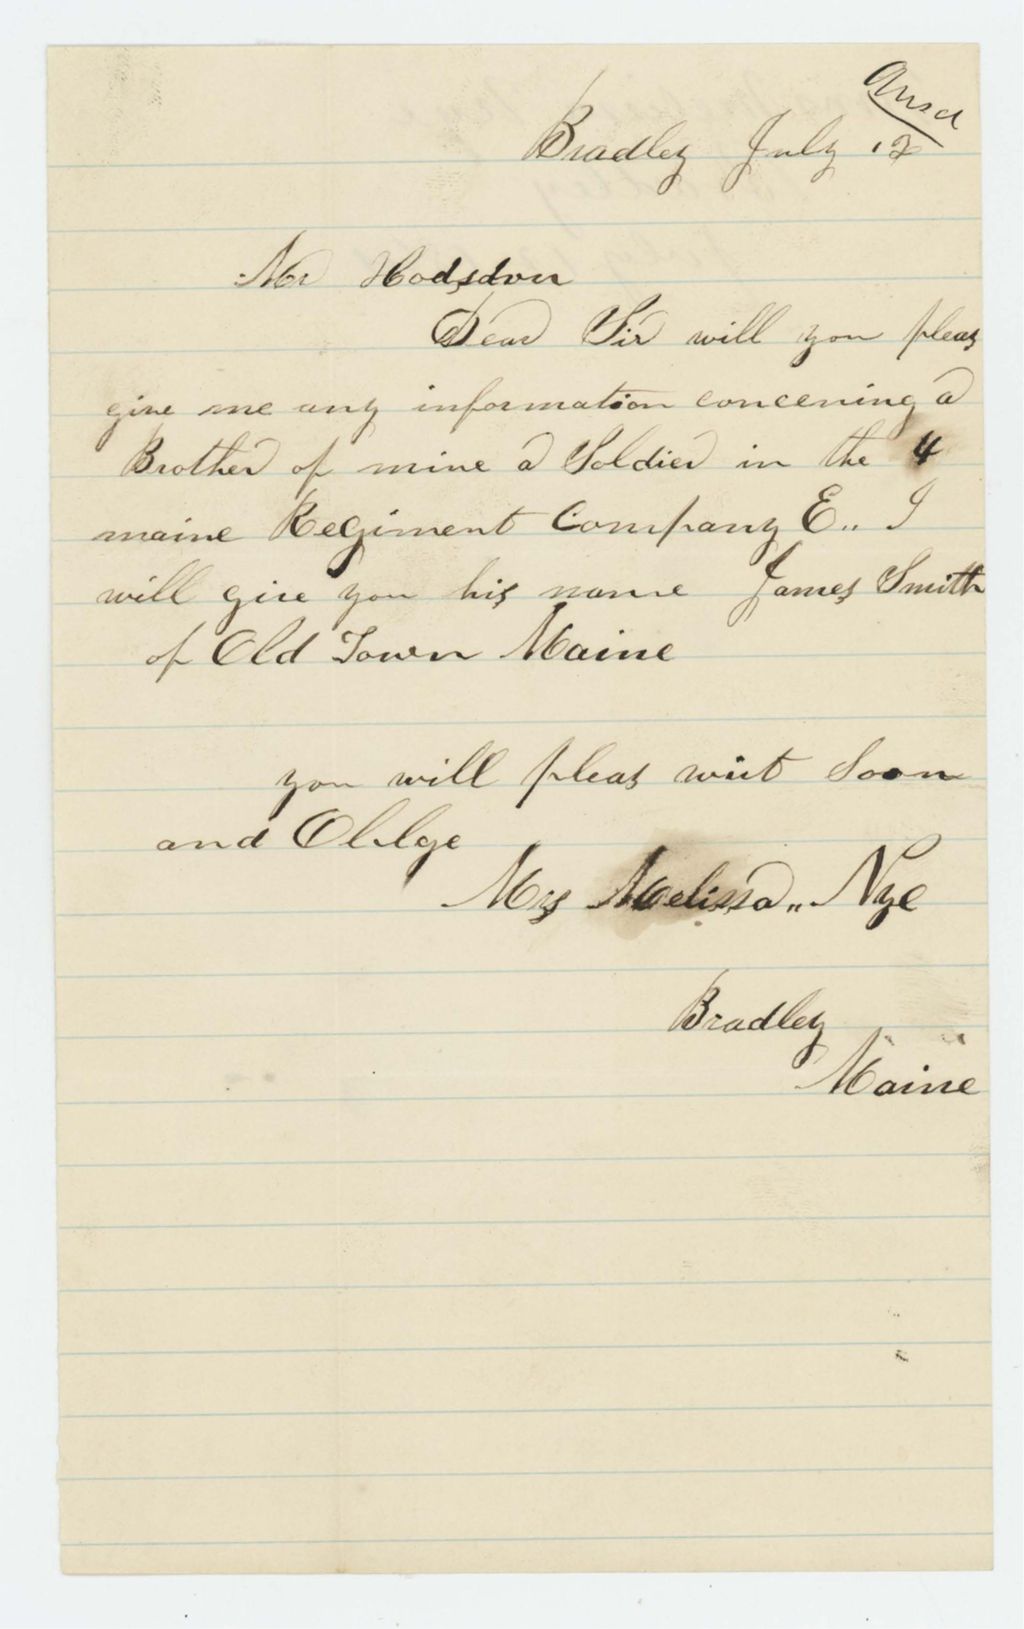 Ansd
Bradley July 12
Mr Hodsdon
Dear Sir will you pleas
give me any information concening a
Brother of mine a Soldier in the 4
maine Regiment Company E.. I
will give you his name James Smith
of Old Town Maine
you will pleas writ Soon
and Oblige
Mrs Melissa,, Nye
Bradley
Maine